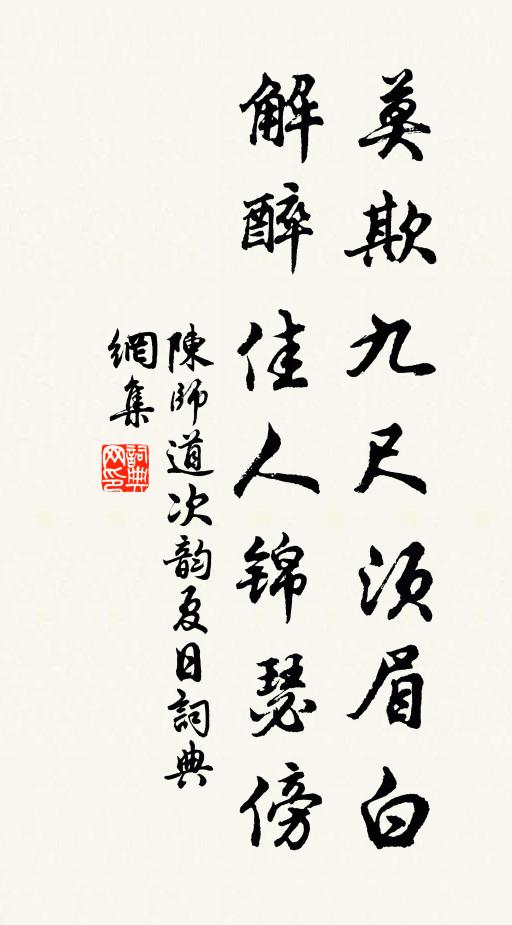 莫欺九尺須眉白
解醉佳人錦瑟傍
陳師道次韵夏日詞典
網集
詞典
网印